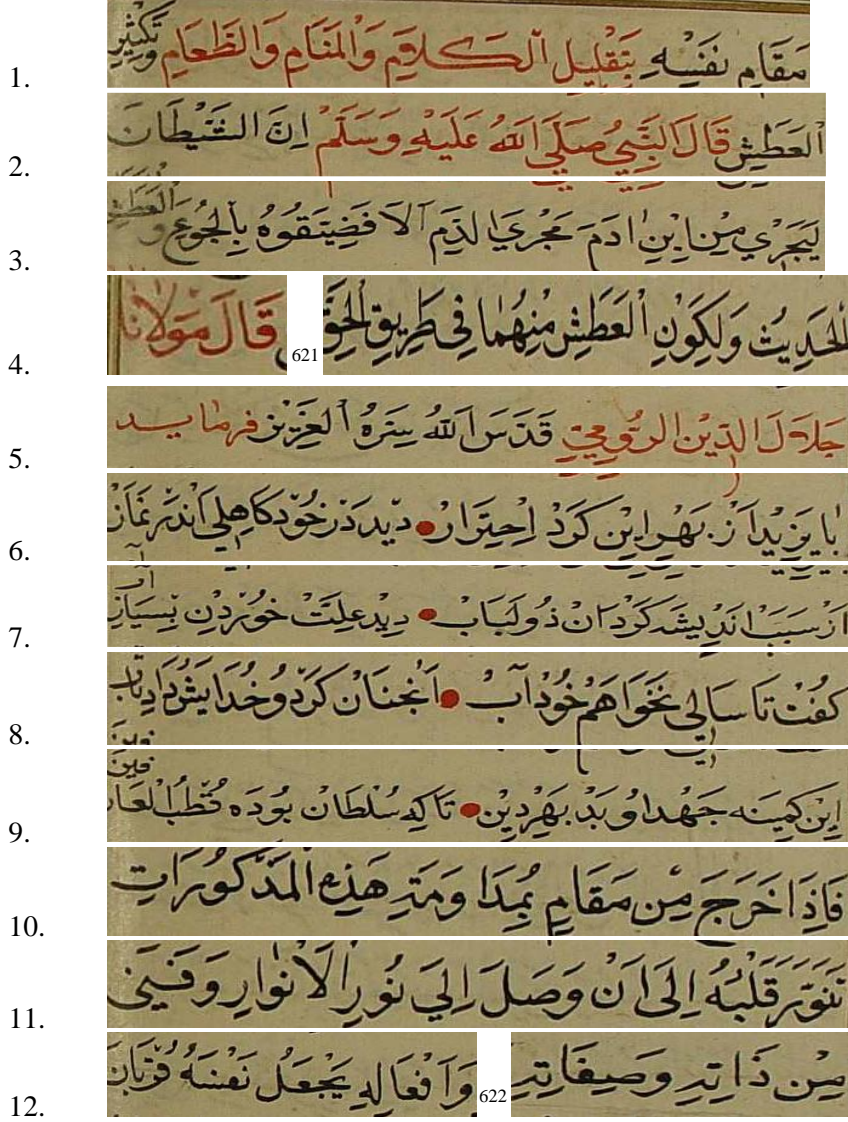 1. مَقَامِ نَفْسِهِ بِتَقْلِيلِ الْكَلَامِ وَالْمَنَامِ وَالطَّعَامِ وَتَكْثِيرِ
2. الْعَطَشِ قَالَ النَّبِيُّ صَلَّى اللهُ عَلَيْهِ وَسَلَّمَ اِنَّ الشَّيْطَانَ
3. لَيَجْرِي مِنْ اِبْنِ ادَمَ مَجْرَى الدَّمِ اَلَا فَضَيِّقُوهُ بِالْجُوعِ وَالْعَطَشِ
4. الْحَدِيثَ وَلِكَوْنِ الْعَطَشِ مِنْهُمَا فِي طَرِيقِ الْحَقِّ 621 قَالَ مَوْلَانَا
5. جَلَالَ الدِّينِ الرُّومِيِّ قَدَّسَ اللهُ سِرَّهُ الْعَزِيزِ فرمايد
6. بَا يَزِيدْ اَزْ بَهْرِ اِينْ كَرْدْ اِحْتِرَازْ • دِيدْ دَرْ خُودْ كَاهِلِي اَنْدَرْ نَمَازْ
7. اَزْ سَبَبْ اَنْدِيشَه كَرْدْ اٰنْ ذُو لُبَابْ • دِيدْ عِلَّتْ خُورْدَنِ بِسْيَارِ آبْ
8. كُفْتْ تَا سَالِي نَخَوَاهَمْ خُورْدْ آبْ • اَنْچُنَانْ كَرْدُ و خُدَايَشْ دَادْ تَابْ
9. اِينْ كَمِينَه جَهْدِ اُو بُدْ بَهْرِ دِينْ • تَاكِه سُلْطَانْ بُودَه قُطْبُ الْعَارِفِينْ
10. فَاِذَا خَرَجَ مِنْ مَقَامٍ بِمُدَاوَمَةِ هَذِهِ الْمَذْكُورَاتِ
11. تَنَوَّرَ قَلْبُهُ اِلَى اَنْ وَصَلَ اِلَى نُورِ الْاَنْوَارِ وَفَنِيَ
12. مِنْ ذَاتِهِ وَصِفَاتِهِ 622 وَاَفْعَالِهِ يَجْعَلُ نَفْسَهُ قُرْبَانَ